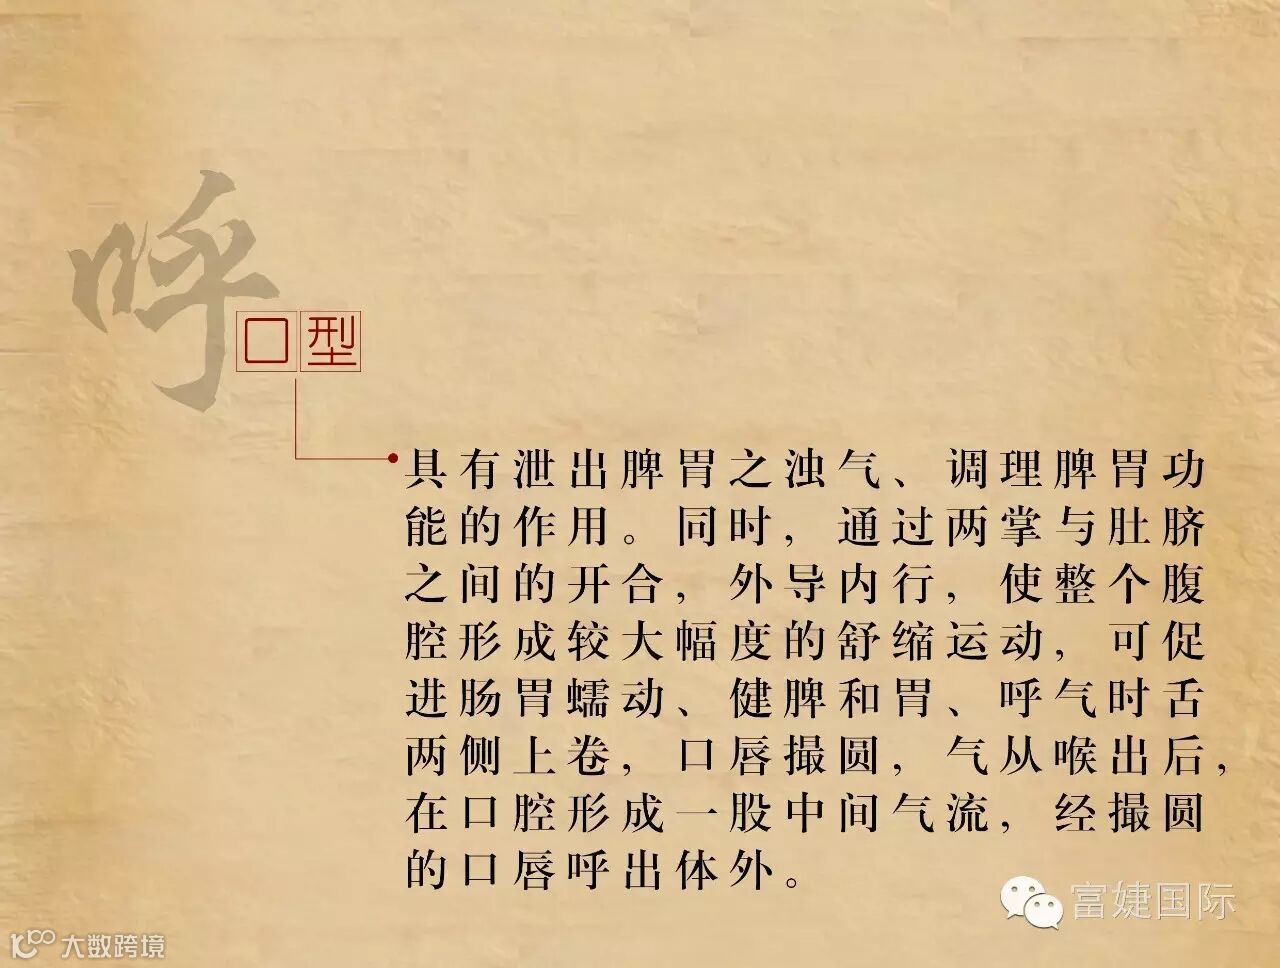 呼
口型
具有泄出脾胃之浊气、调理脾胃功
能的作用。同时，通过两掌与肚脐
之间的开合，外导内行，使整个腹
腔形成较大幅度的舒缩运动，可促
进肠胃蠕动、健脾和胃、呼气时舌
两侧上卷，口唇撮圆，气从喉出后，
在口腔形成一股中间气流，经撮圆
的口唇呼出体外。
富婕国际
大数跨境